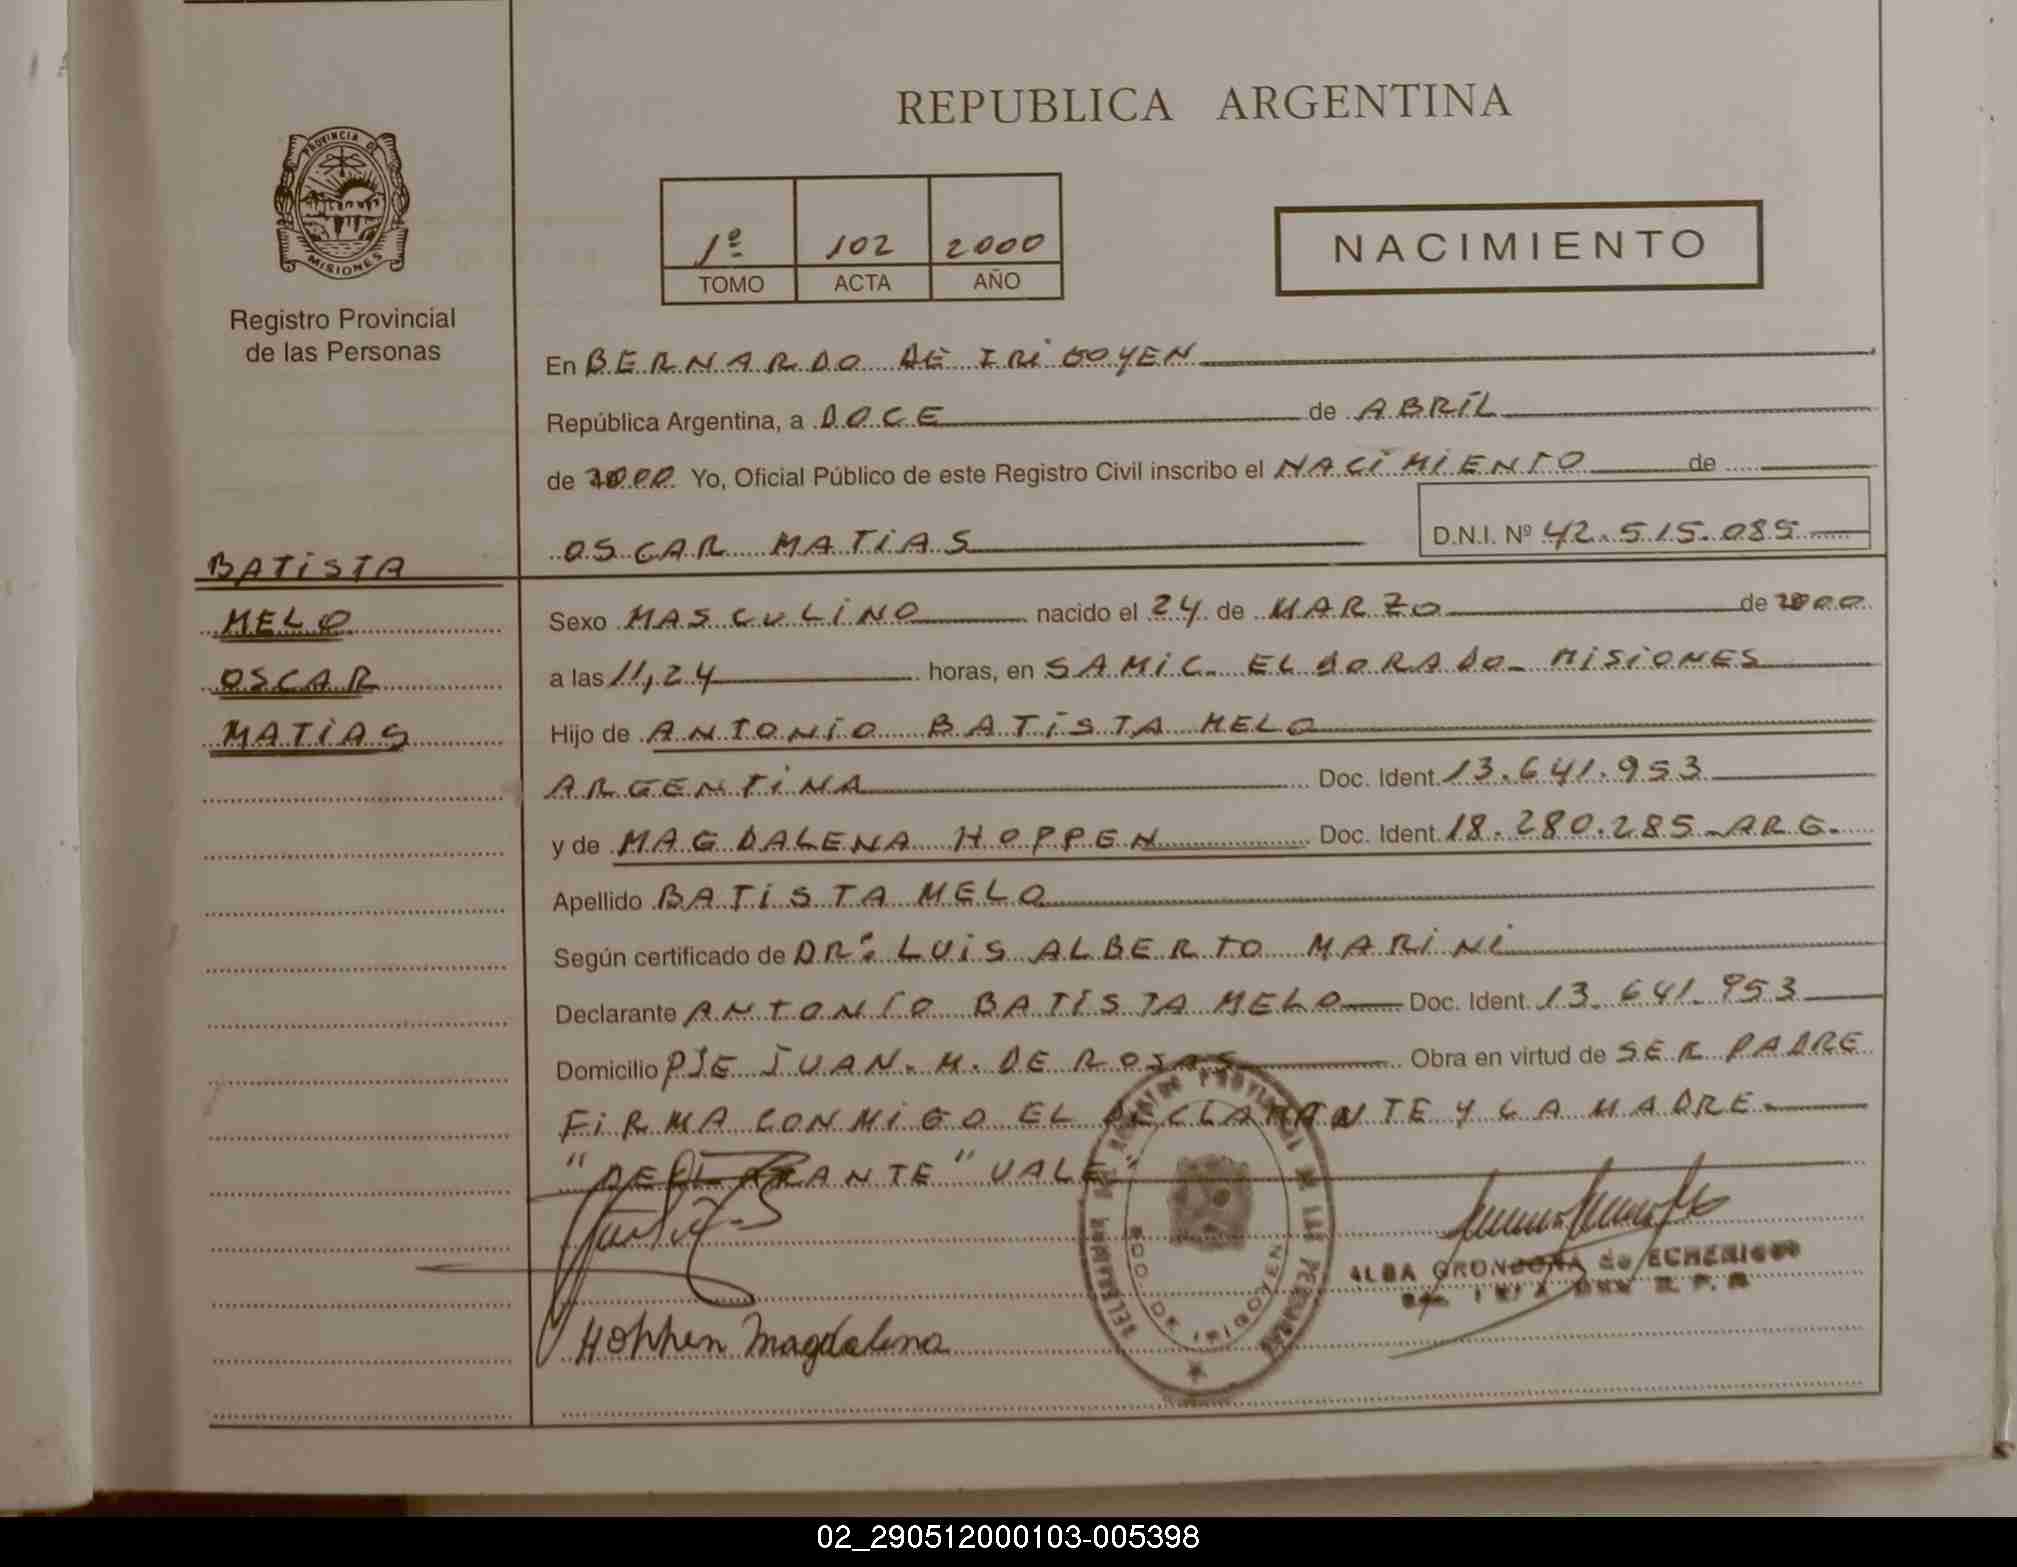 REPUBLICA ARGENTINA
PROVINCIA DE
MISIONES
Registro Provincial
de las Personas
1º 102 2000
TOMO ACTA AÑO
NACIMIENTO
En BERNARDO DE IRIGOYEN
República Argentina, a DOCE de ABRIL
de 2000 Yo, Oficial Público de este Registro Civil inscribo el NACIMIENTO de
OSCAR MATIAS D.N.I. Nº 42.515.085
BATISTA
MELO
OSCAR
MATIAS
Sexo MASCULINO nacido el 24 de MARZO de 2000
a las 11,24 horas, en SAMIC. ELDORADO- MISIONES
Hijo de ANTONIO BATISTA MELO
ARGENTINA Doc. Ident. 13.641.953
y de MAGDALENA HOPPEN Doc. Ident. 18.280.285-ARG.
Apellido BATISTA MELO
Según certificado de DR: LUIS ALBERTO MARINI
Declarante ANTONIO BATISTA MELO Doc. Ident. 13.641.953
Domicilio PJE JUAN.M.DE ROSAS Obra en virtud de SER PADRE
FIRMA CONMIGO EL DECLARANTE Y LA MADRE-
"DECLARANTE" VALE"
BDO. DE IRIGOYEN
ALBA GRONDONA de ECHENIQUE
Hoppen Magdalena
02_290512000103-005398